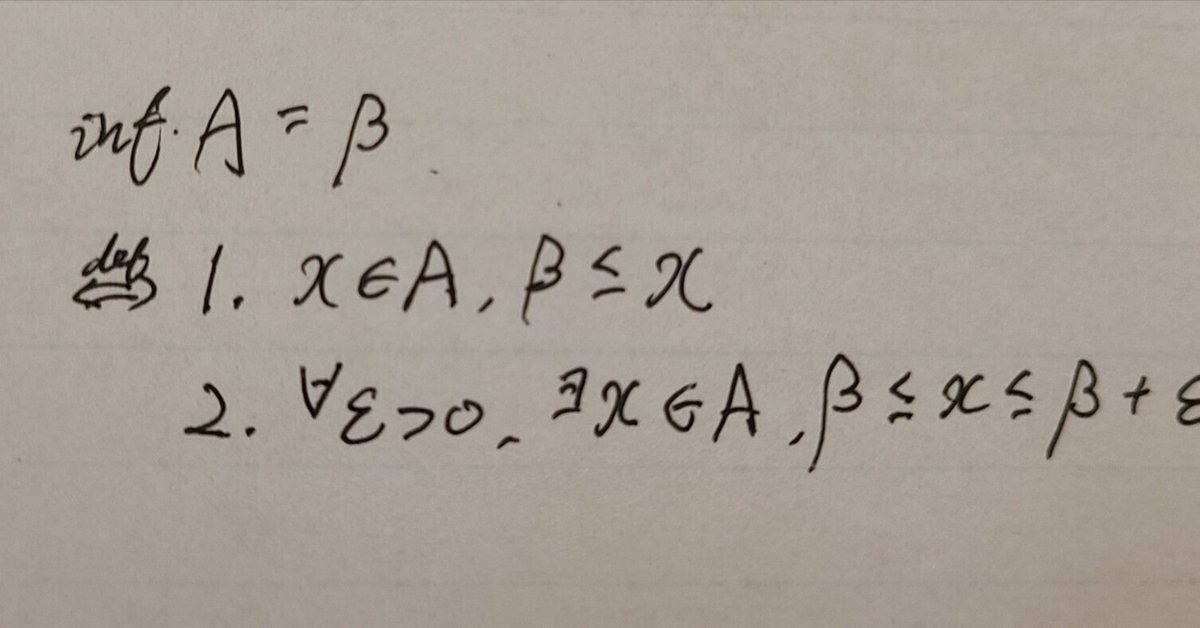 inf. A = β
def ⟺ 1. x ∈ A, β ≤ x
2. ∀ε>0, ∃x ∈ A, β ≤ x ≤ β + ε